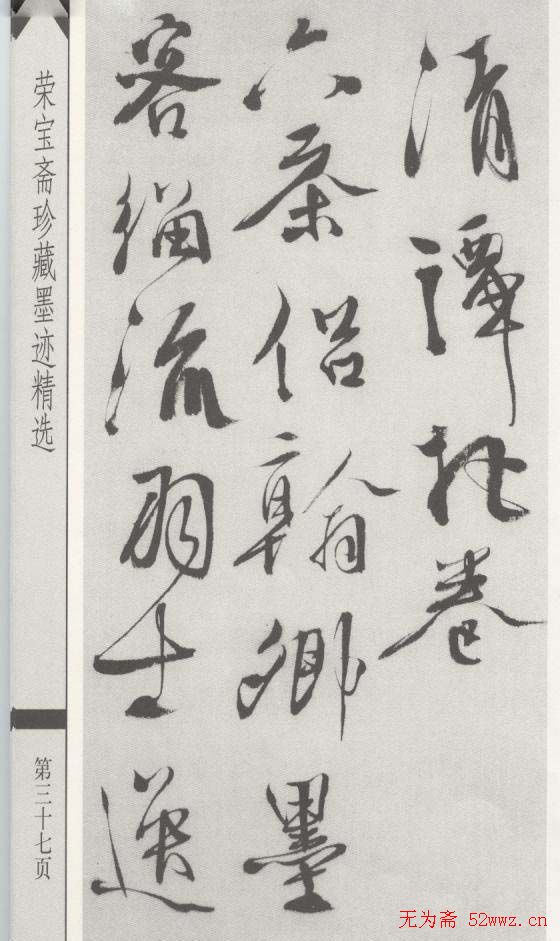 清譚把卷
六茶侣翰卿墨
客緇流羽士逸
荣宝斋珍藏墨迹精选
第三十七页
无为斋 52wwz.cn